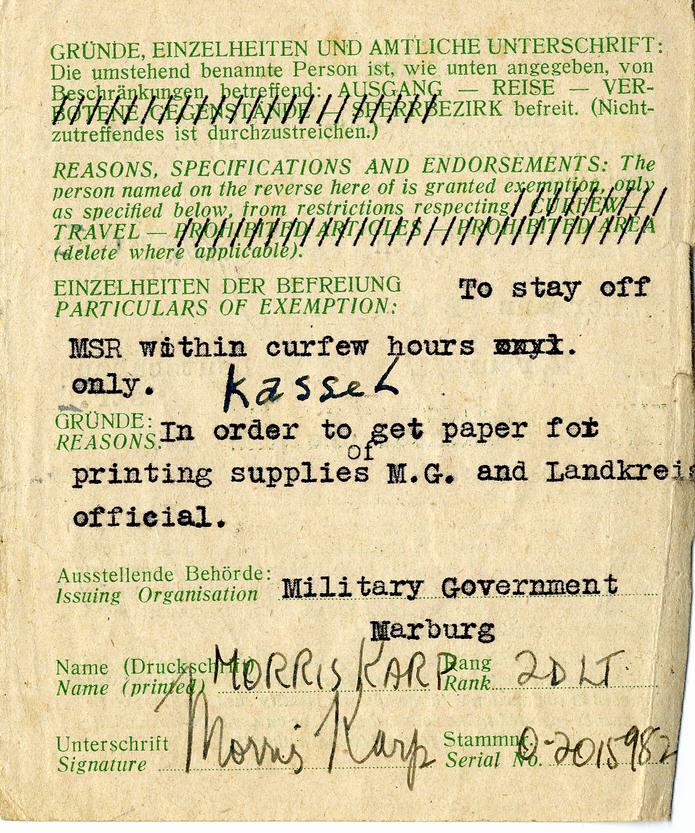 GRÜNDE, EINZELHEITEN UND AMTLICHE UNTERSCHRIFT:
Die umstehend benannte Person ist, wie unten angegeben, von
Beschränkungen, betreffend: AUSGANG — REISE — VER-
BOTENE GEGENSTÄNDE — SPERRBEZIRK befreit. (Nicht-
zutreffendes ist durchzustreichen.)
REASONS, SPECIFICATIONS AND ENDORSEMENTS: The
person named on the reverse here of is granted exemption, only
as specified below, from restrictions respecting CURFEW —
TRAVEL — PROHIBITED ARTICLES — PROHIBITED AREA
(delete where applicable).
EINZELHEITEN DER BEFREIUNG
PARTICULARS OF EXEMPTION:
To stay off
MSR within curfew hours
only. Kassel
GRÜNDE:
REASONS: In order to get paper for
of
printing supplies M.G. and Landkreis
official.
Ausstellende Behörde:
Issuing Organisation Military Government
Marburg
Name (Druckschrift) MORRIS KARP Rang 2D LT.
Name (printed) Rank
Unterschrift Morris Karp Stammnr. O-2015982
Signature Serial No.